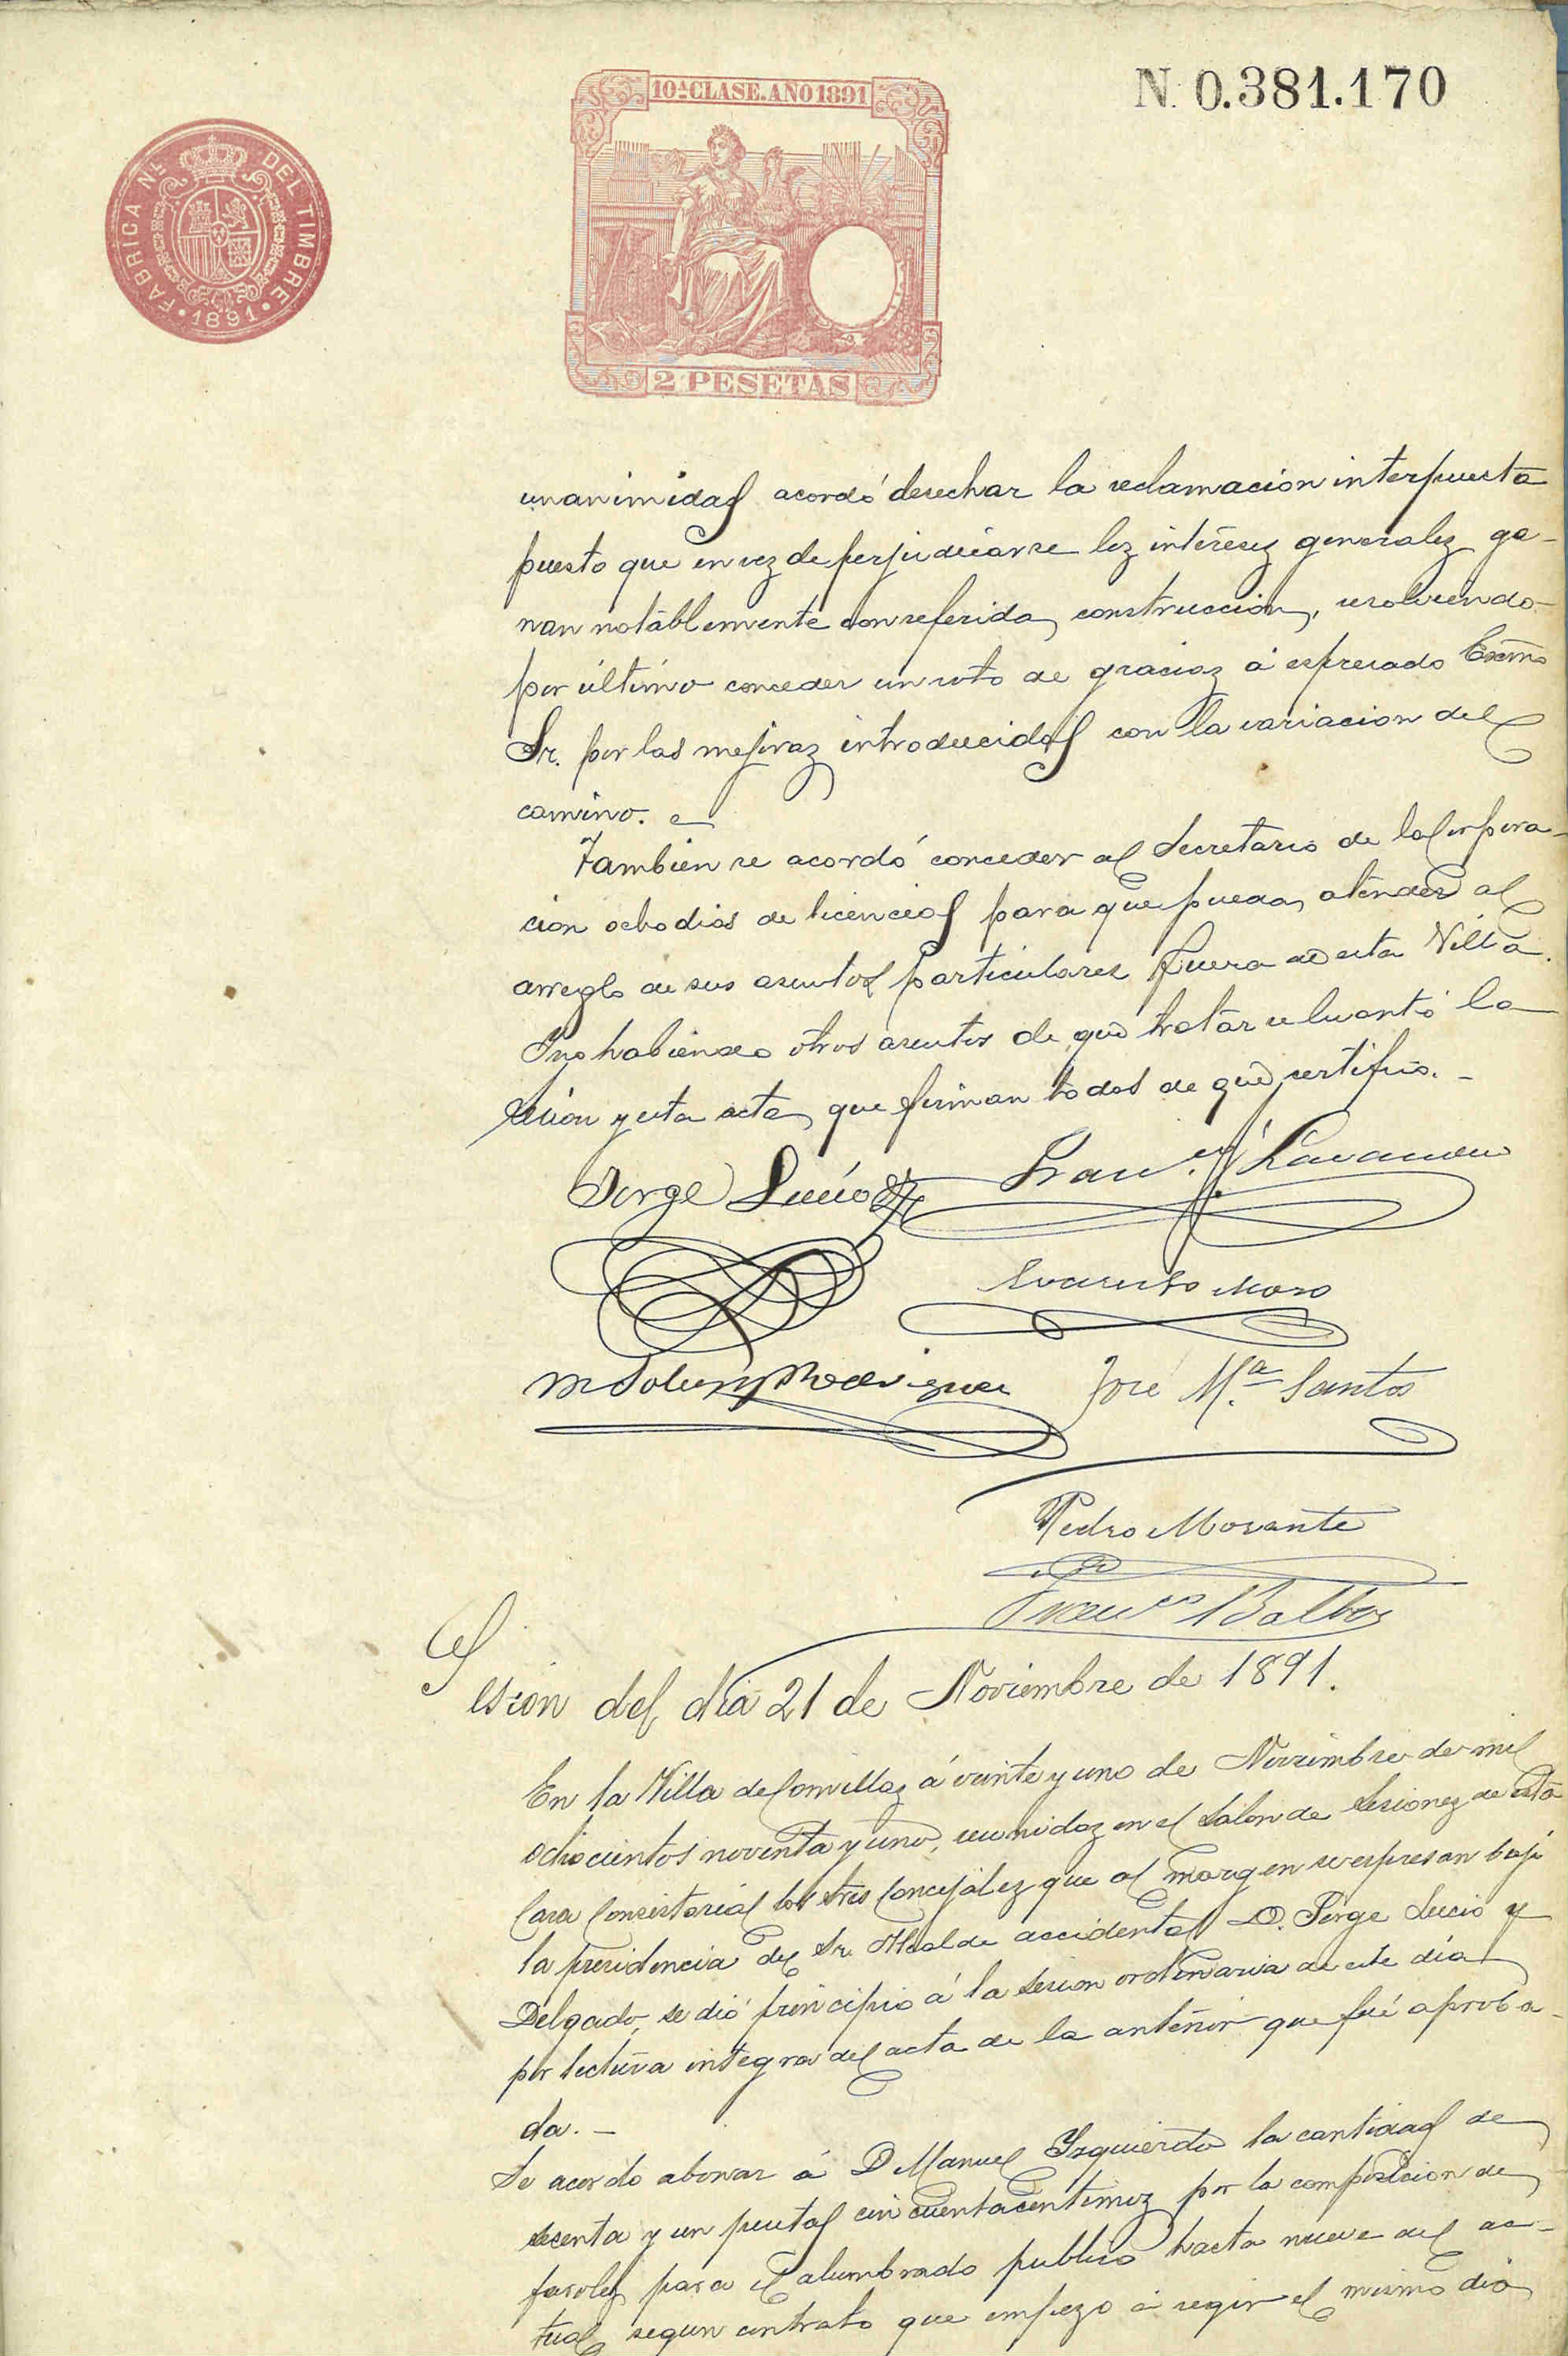 N. 0.381.170
10ª CLASE. AÑO 1891
FABRICA Nl. DEL TIMBRE
1891
2 PESETAS
unanimidad acordó desechar la reclamacion interpuesta
puesto que en vez de perjudicarse los intereses generales ga-
nan notablemente con referida construccion, resolviendo
por último conceder un voto de gracias á espresado Excmo
Sr. por las mejoras introducidas con la variacion del
camino.
Tambien se acordó conceder al Secretario de la Corpora-
cion ocho dias de licencia para que pueda atender al
arreglo de sus asuntos particulares fuera de esta Villa.
Y no habiendo otros asuntos de que tratar se levantó la
sesion y esta acta que firman todos de que certifico.
Jorge Lucio
Franco
Evaristo Moro
Rodriguez José Mª Santos
Pedro Morante
Franco Balbas
Sesion del dia 21 de Noviembre de 1891.
En la Villa de Comillas á veinte y uno de Noviembre de mil
ochocientos noventa y uno, reunidos en el Salon de Sesiones de esta
Casa Consistorial los Sres Concejales que al margen se espresan bajo
la presidencia del Sr. Alcalde accidental D. Jorge Lucio y
Delgado, se dió principio á la sesion ordinaria de este dia
por lectura integra del acta de la anterior que fué aproba-
da.
Se acordo abonar á D Manuel Izquierdo la cantidad de
sesenta y un pesetas cincuenta centimos por la composicion de
faroles para el alumbrado publico hasta nueve del ac-
tual segun contrato que empezo á regir el mismo dia